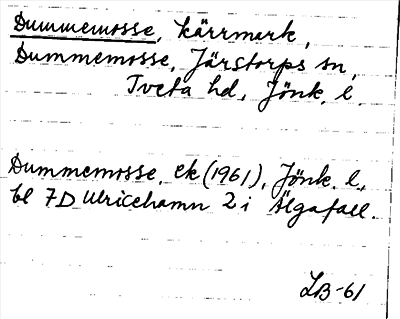 Dummemosse, kärrmark,
Dummemosse, Järstorps sn,
Tveta hd, Jönk. l.
Dummemosse, ek (1961), Jönk. l.,
bl 7D Ulricehamn 2 i Älgafall.
LB-61